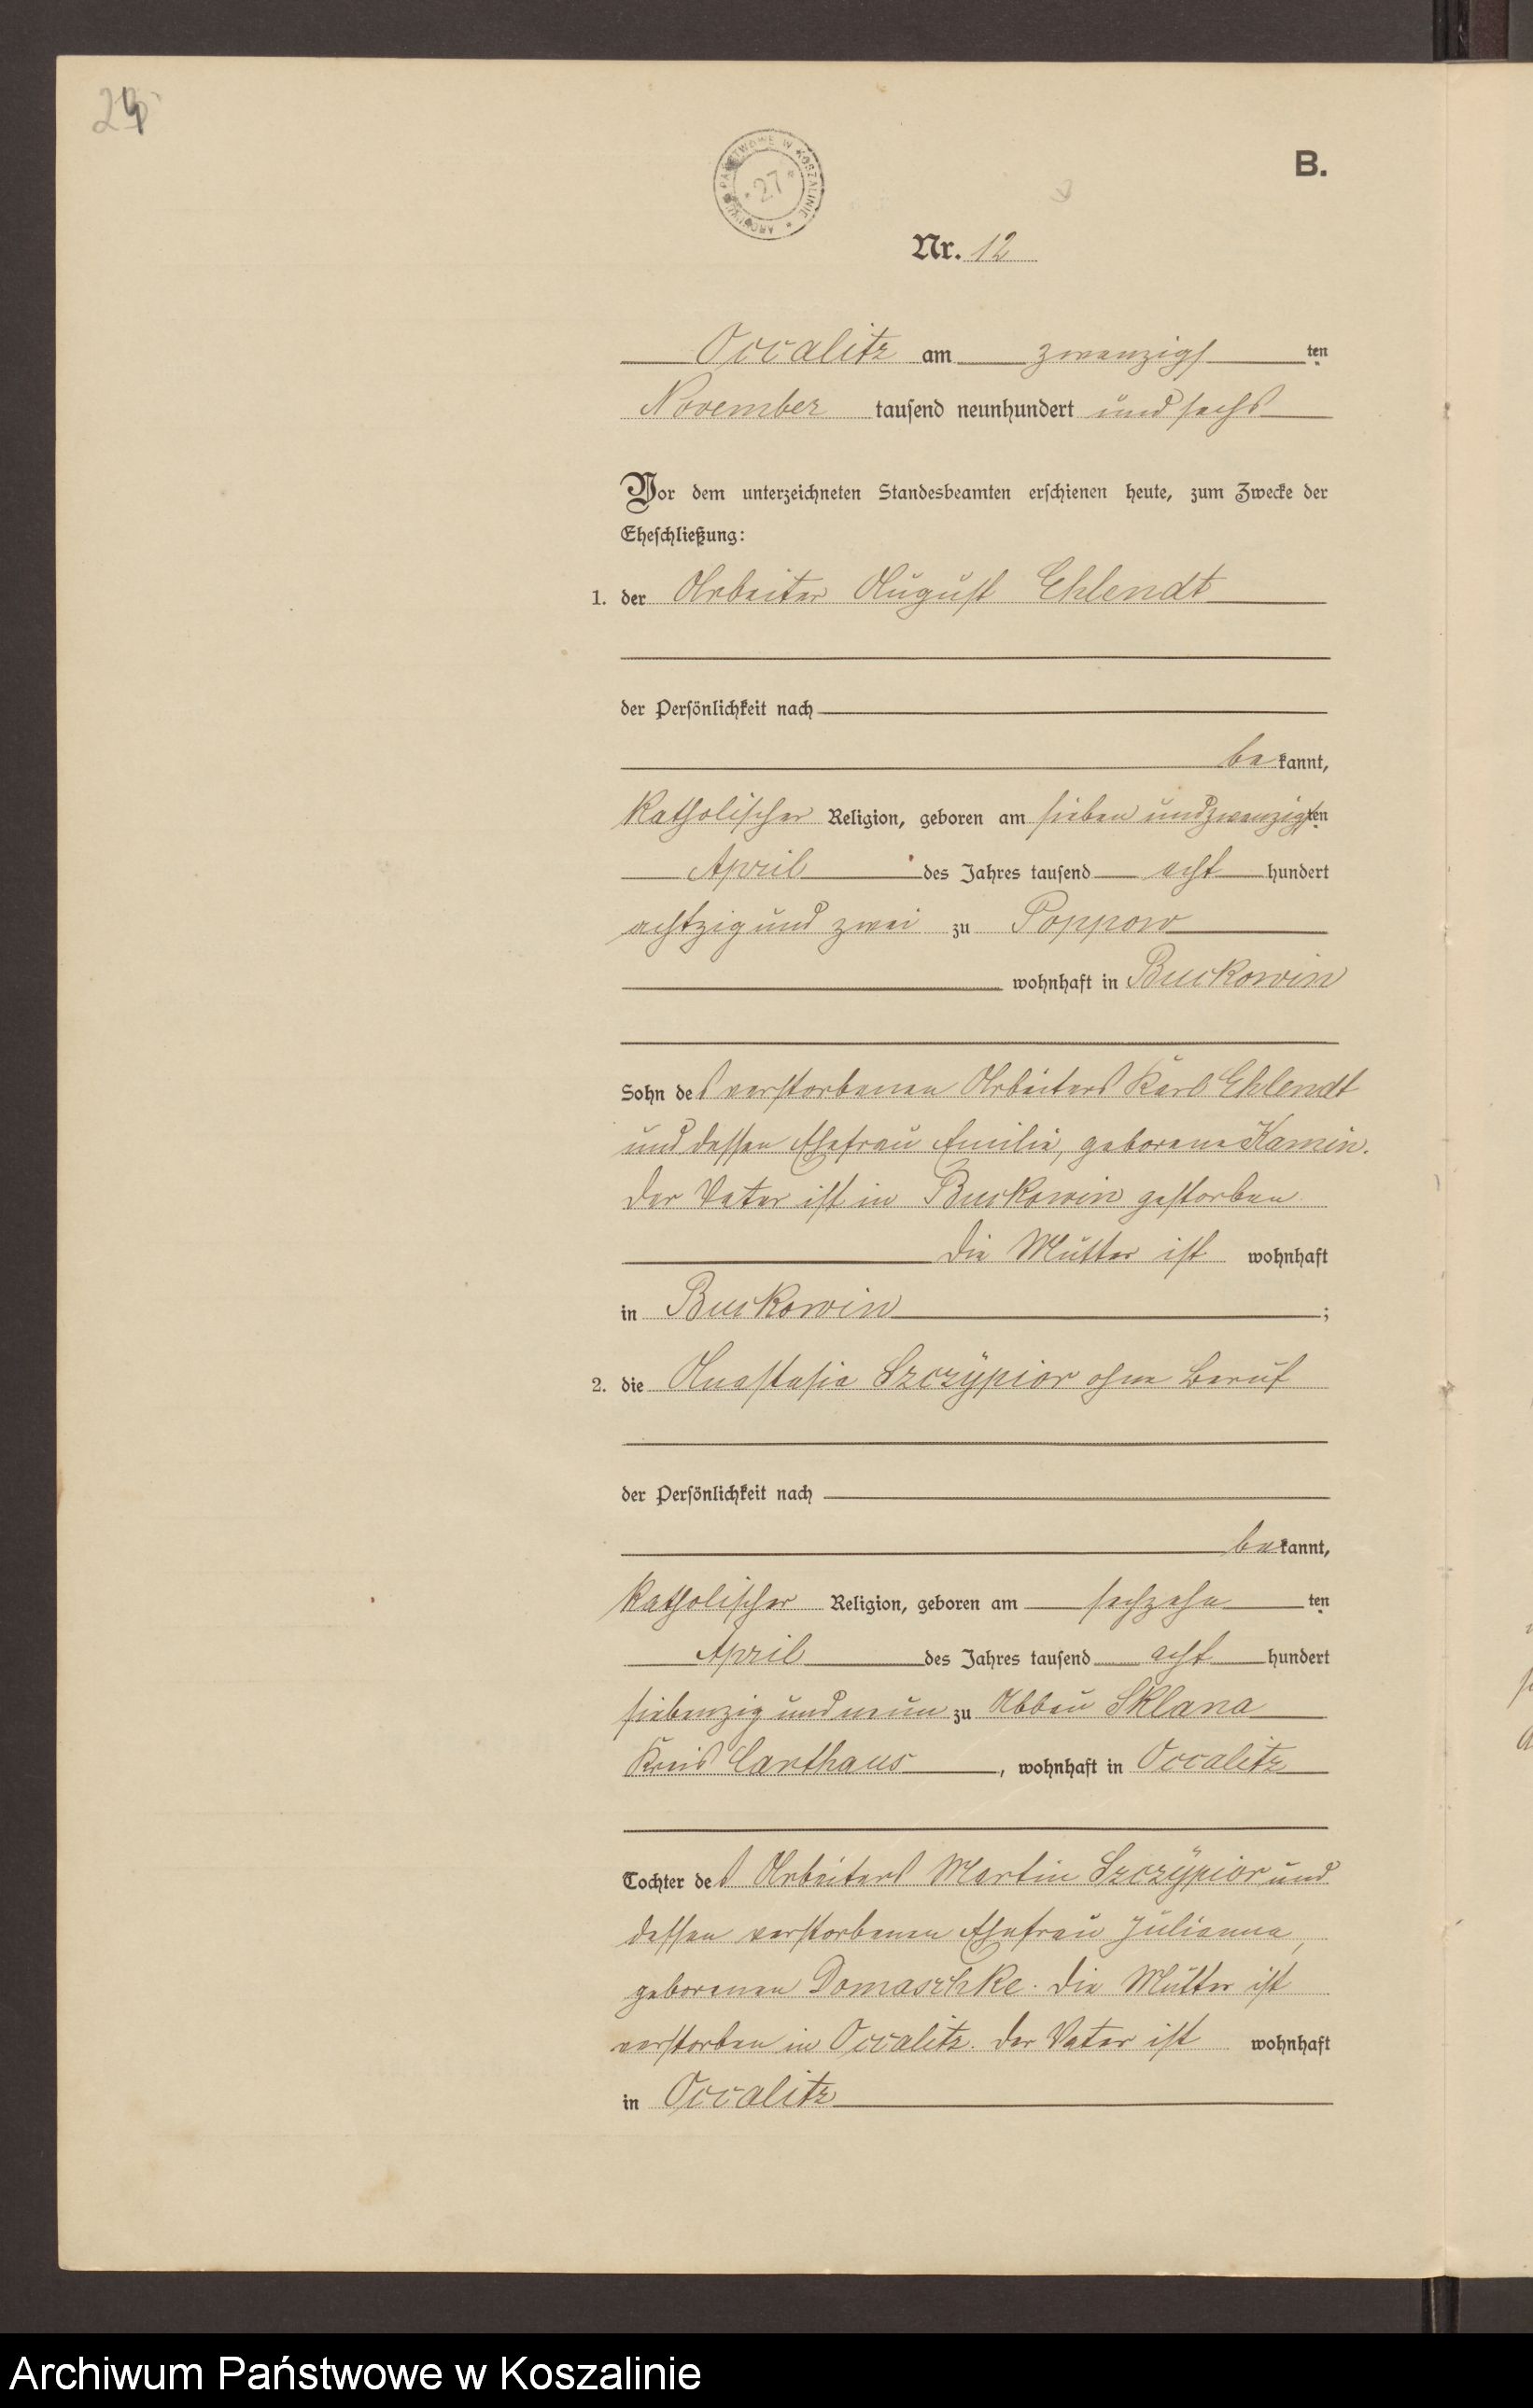 24
ARCHIWUM PAŃSTWOWE W KOSZALINIE
* 27 *
B.
Nr. 12
Occalitz am zwanzigsten
November tausend neunhundert und sechs
Vor dem unterzeichneten Standesbeamten erschienen heute, zum Zwecke der
Eheschließung:
1. der Arbeiter August Ehlendt
der Persönlichkeit nach
bekannt,
katholischer Religion, geboren am sieben und zwanzigsten
April des Jahres tausend acht hundert
achtzig und zwei zu Poppow
wohnhaft in Buckowin
Sohn des verstorbenen Arbeiters Karl Ehlendt
und dessen Ehefrau Emilie, geborene Kamin.
Der Vater ist in Buckowin gestorben
Die Mutter ist wohnhaft
in Buckowin ;
2. die Anastasia Szczÿpior ohne Beruf
der Persönlichkeit nach
bekannt,
katholischer Religion, geboren am sechzehnten
April des Jahres tausend acht hundert
siebenzig und neun zu Abbau Sklana
Kreis Carthaus, wohnhaft in Occalitz
Tochter des Arbeiters Martin Szczÿpior und
dessen verstorbenen Ehefrau Julianna,
geborenen Domaschke. Die Mutter ist
verstorben in Occalitz. Der Vater ist wohnhaft
in Occalitz
Archiwum Państwowe w Koszalinie